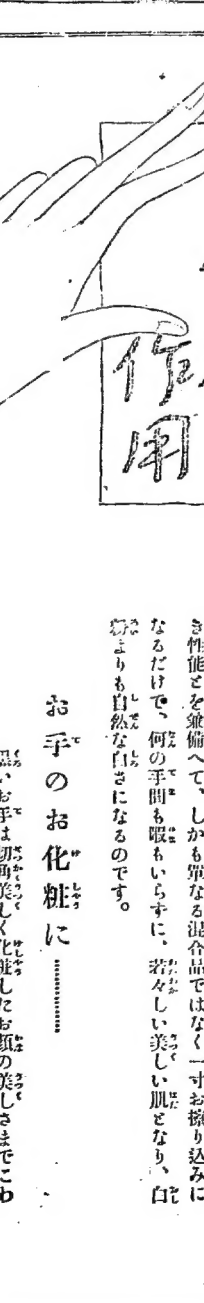 作
用
き性能とを兼備へて、しかも單なる混合品ではなく一寸お擦り込みに
なるだけで、何の手間も暇もいらずに、若々しい美しい肌となり、白
粉よりも自然な白さになるのです。
お手のお化粧に…………
黒いお手は切角美しく化粧したお顔の美しさまでこわ